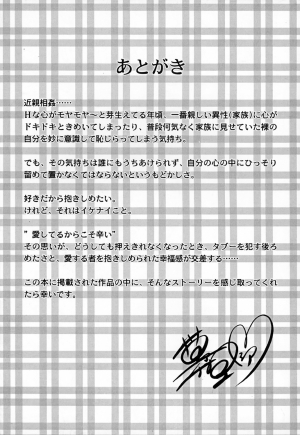 あとがき
近親相姦……
Hな心がモヤモヤ〜と芽生えてる年頃、一番親しい異性(家族)に心が
ドキドキときめいてしまったり、普段何気なく家族に見せていた裸の
自分を妙に意識して恥じらってしまう気持ち。
でも、その気持ちは誰にもうちあけられず、自分の心の中にひっそり
留めて置かなくてはならないというもどかしさ。
好きだから抱きしめたい。
けれど、それはイケナイこと。
"愛してるからこそ辛い"
その思いが、どうしても押えきれなくなったとき、タブーを犯す後ろ
めたさと、愛する者を抱きしめられた幸福感が交差する……
この本に掲載された作品の中に、そんなストーリーを感じ取ってくれ
たら幸いです。